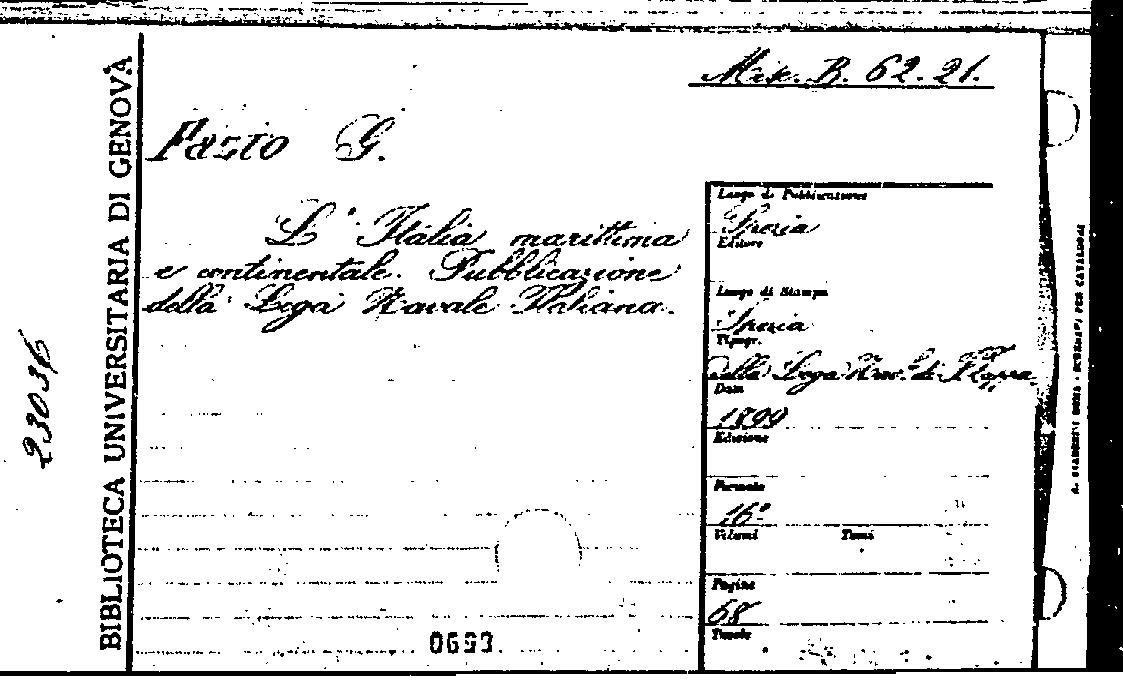 Misc. B. 62. 21.
Fasto G.
L'Italia marittima
e continentale. Pubblicazione
della Lega Navale Italiana.
Luogo di Pubblicazione
Spezia
Editore
Luogo di Stampa
Spezia
Tipogr.
della Lega di
Data
1899
Edizione
Formato
16°
Volumi Tomi
Pagine
68
Tavole
0693
BIBLIOTECA UNIVERSITARIA DI GENOVA
23036
PER CATALOGHI